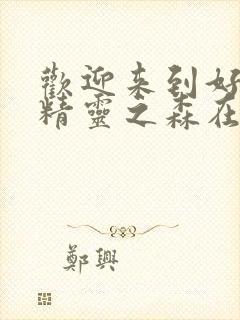 歡迎来到好
精靈之森在
鄭興